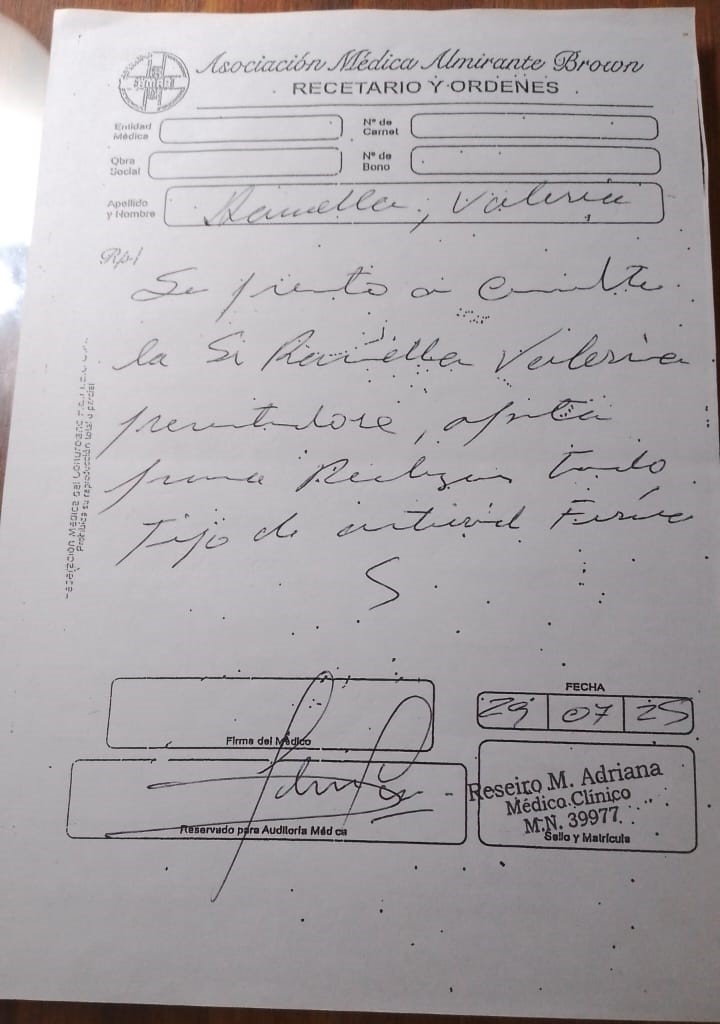 Asociación Médica Almirante Brown
RECETARIO Y ORDENES
Entidad Médica
Nº de Carnet
Obra Social
Nº de Bono
Apellido y Nombre
Ramella, Valeria
Rp/
Se presento a consulta
la Sr Ramella Valeria
presentadose, apta
para Realizar todo
tipo de actividad Física
S
Prohibida su reproducción total o parcial
Firma del Médico
FECHA
29 07 25
Reservado para Auditoría Médica
Reseiro M. Adriana
Médico Clínico
M.N. 39977
Sello y Matrícula